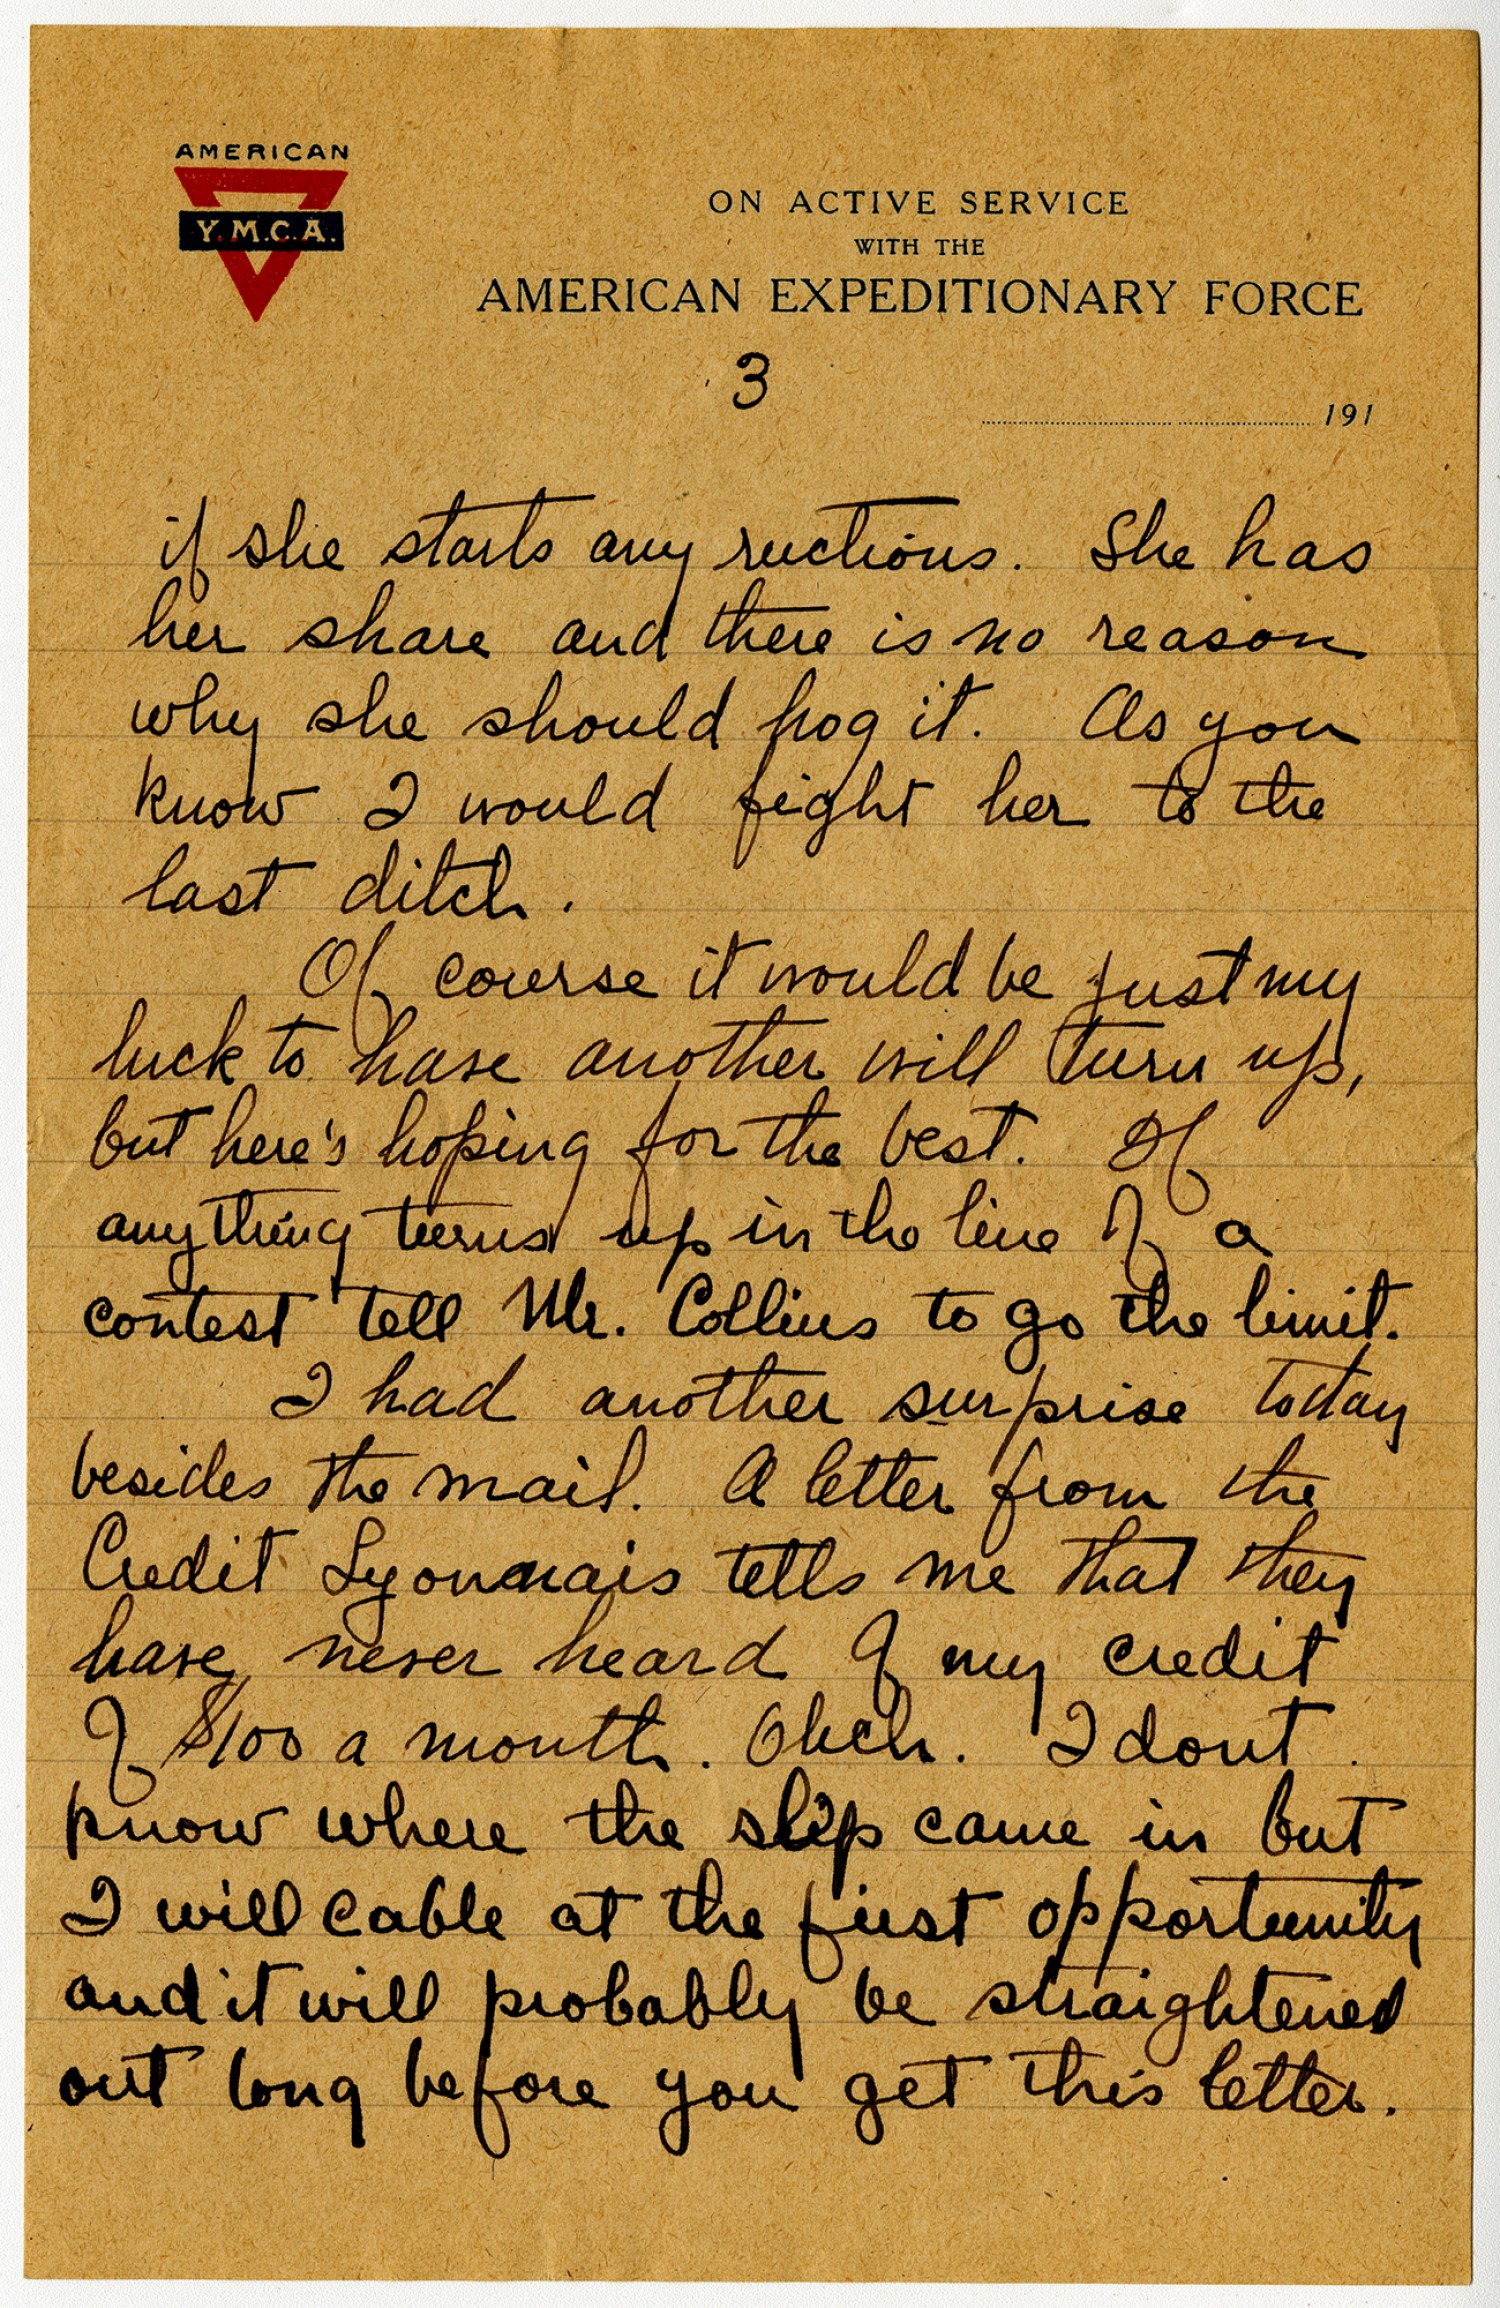 AMERICAN
Y.M.C.A.
ON ACTIVE SERVICE
WITH THE
AMERICAN EXPEDITIONARY FORCE
3
191
if she starts any ructions. She has
her share and there is no reason
why she should hog it. As you
know I would fight her to the
last ditch.
Of course it would be just my
luck to have another will turn up,
but here's hoping for the best. If
anything turns up in the line of a
contest tell Mr. Collins to go the limit.
I had another surprise today
besides the mail. A letter from the
Credit Lyonnais tells me that they
have never heard of my credit
of $100 a month. Ouch. I dont
know where the slip came in but
I will cable at the first opportunity
and it will probably be straightened
out long before you get this letter.